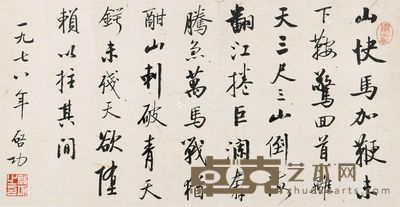 山快馬加鞭未
下鞍驚回首離
天三尺三山倒海
翻江捲巨瀾奔
騰急萬馬戰猶
酣山刺破青天
鍔未殘天欲墮
賴以拄其間
一九七八年 啓功
卓克艺术网